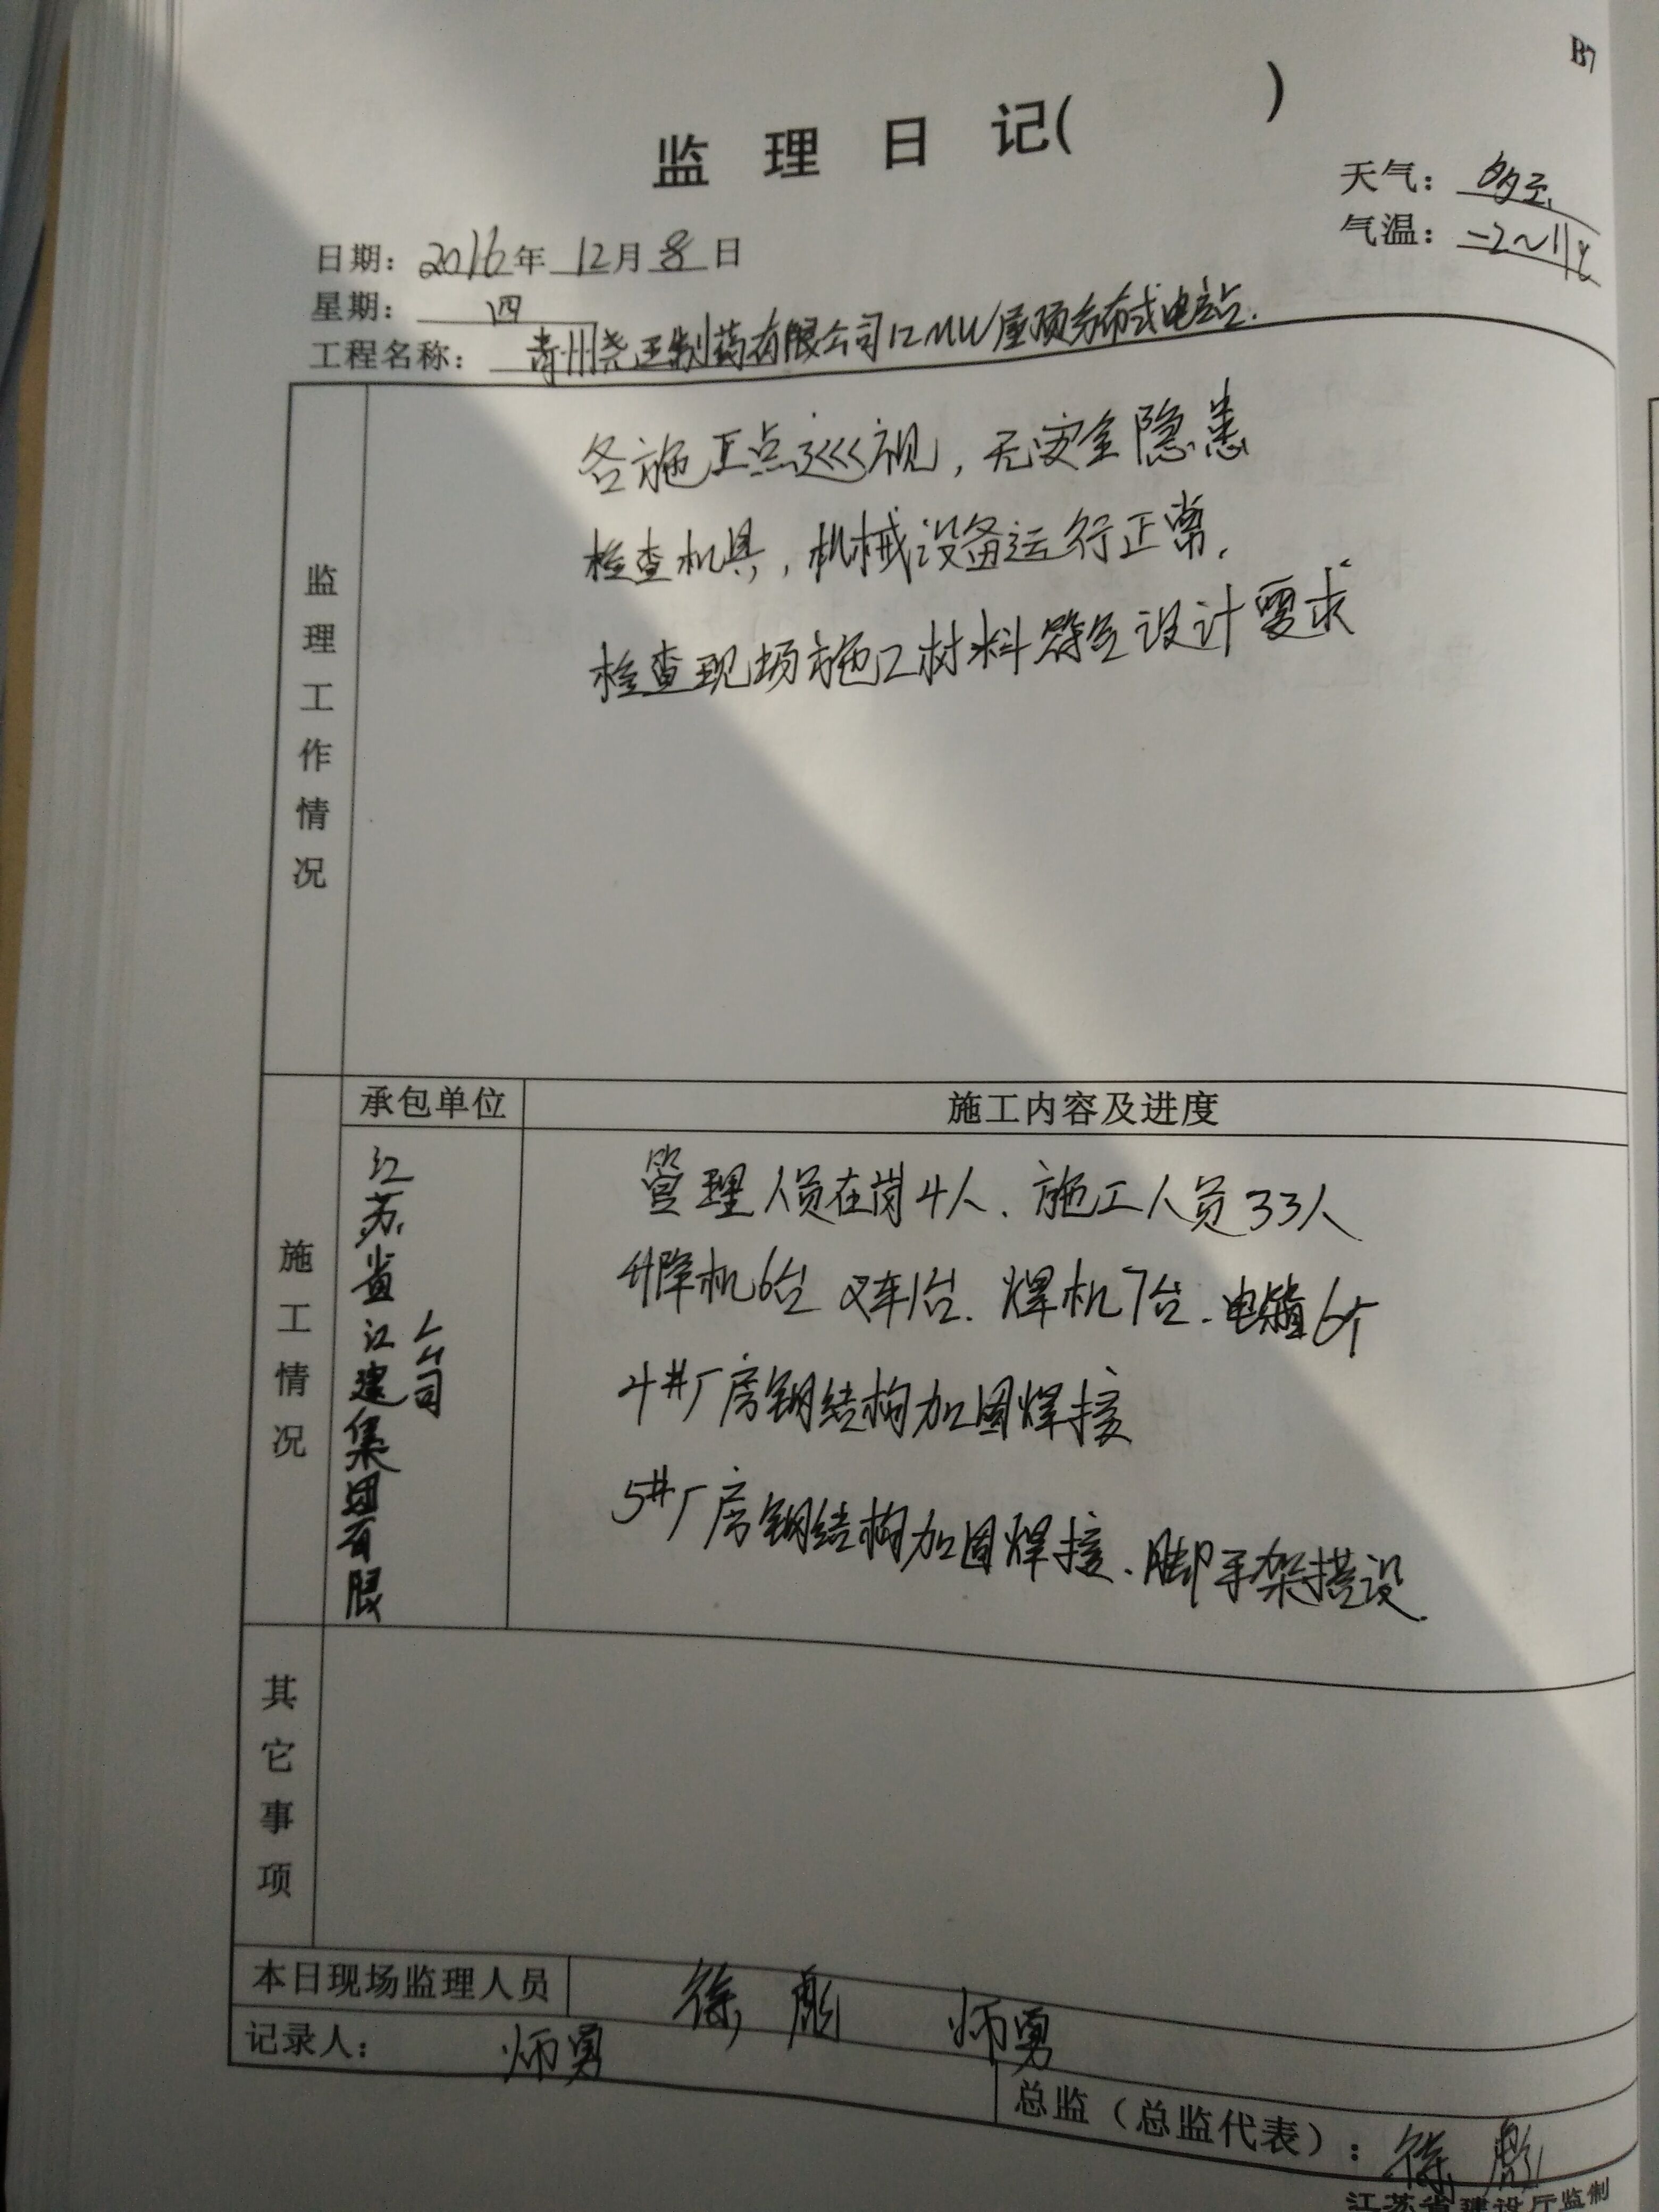 B7
监理日记( )
天气：多云
气温：-2～11℃
日期：2016年12月8日
星期：四
工程名称：青州尧王制药有限公司12MW屋顶分布式电站.
监理工作情况
各施工点巡视，无安全隐患
检查机具，机械设备运行正常.
检查现场施工材料符合设计要求
施工情况
承包单位
施工内容及进度
江苏省江建集团有限公司
管理人员在岗4人、施工人员33人
升降机6台 叉车1台. 焊机7台. 电箱6个
4#厂房钢结构加固焊接
5#厂房钢结构加固焊接、脚手架搭设.
其它事项
本日现场监理人员 徐彪 师勇
记录人： 师勇
总监（总监代表）：徐彪
江苏省建设厅监制